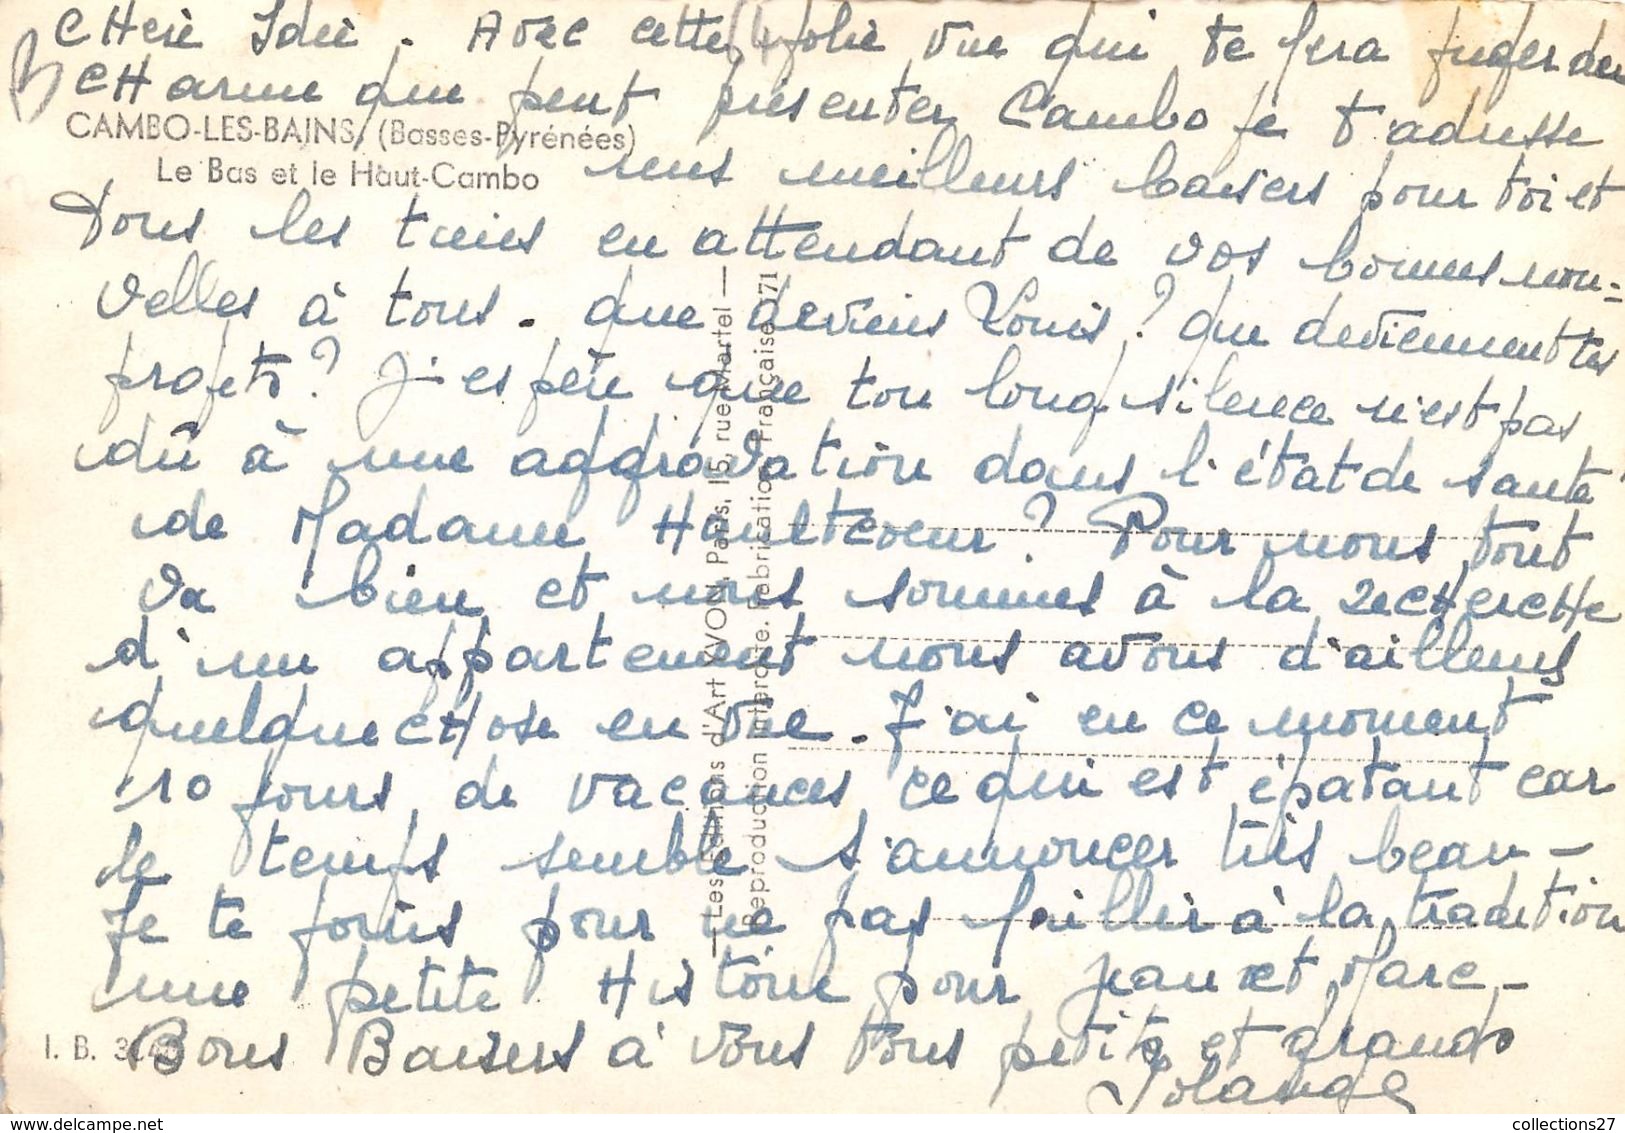 CHère Idée. Avec cette jolie vue qui te fera juger du
CHarme que peut présenter Cambo je t'adresse
CAMBO-LES-BAINS (Basses-Pyrénées)
Le Bas et le Haut-Cambo
mes meilleurs baisers pour toi et
tous les tiens en attendant de vos bonnes nou=
velles à tous. que deviens Louis? que deviennent tes
projets? J'espère que ton long silence n'est pas
dû à une aggravation dans l'état de santé
de Madame Haultcoeur? Pour nous tout
va bien et nous sommes à la recHercHe
d'un appartement nous avons d'ailleurs
quelque cHose en vue. J'ai en ce moment
10 jours de vacances ce qui est épatant car
le temps semble s'annoncer très beau -
Je te joins pour ne pas faillir à la tradition
une petite Histoire pour Jean et Marc -
Bons Baisers à vous tous petits et grands
Yolange
I. B.
— Les Editions d'Art YVON, Paris, 15, rue Martel —
Reproduction interdite. Fabrication Française 071
collections27